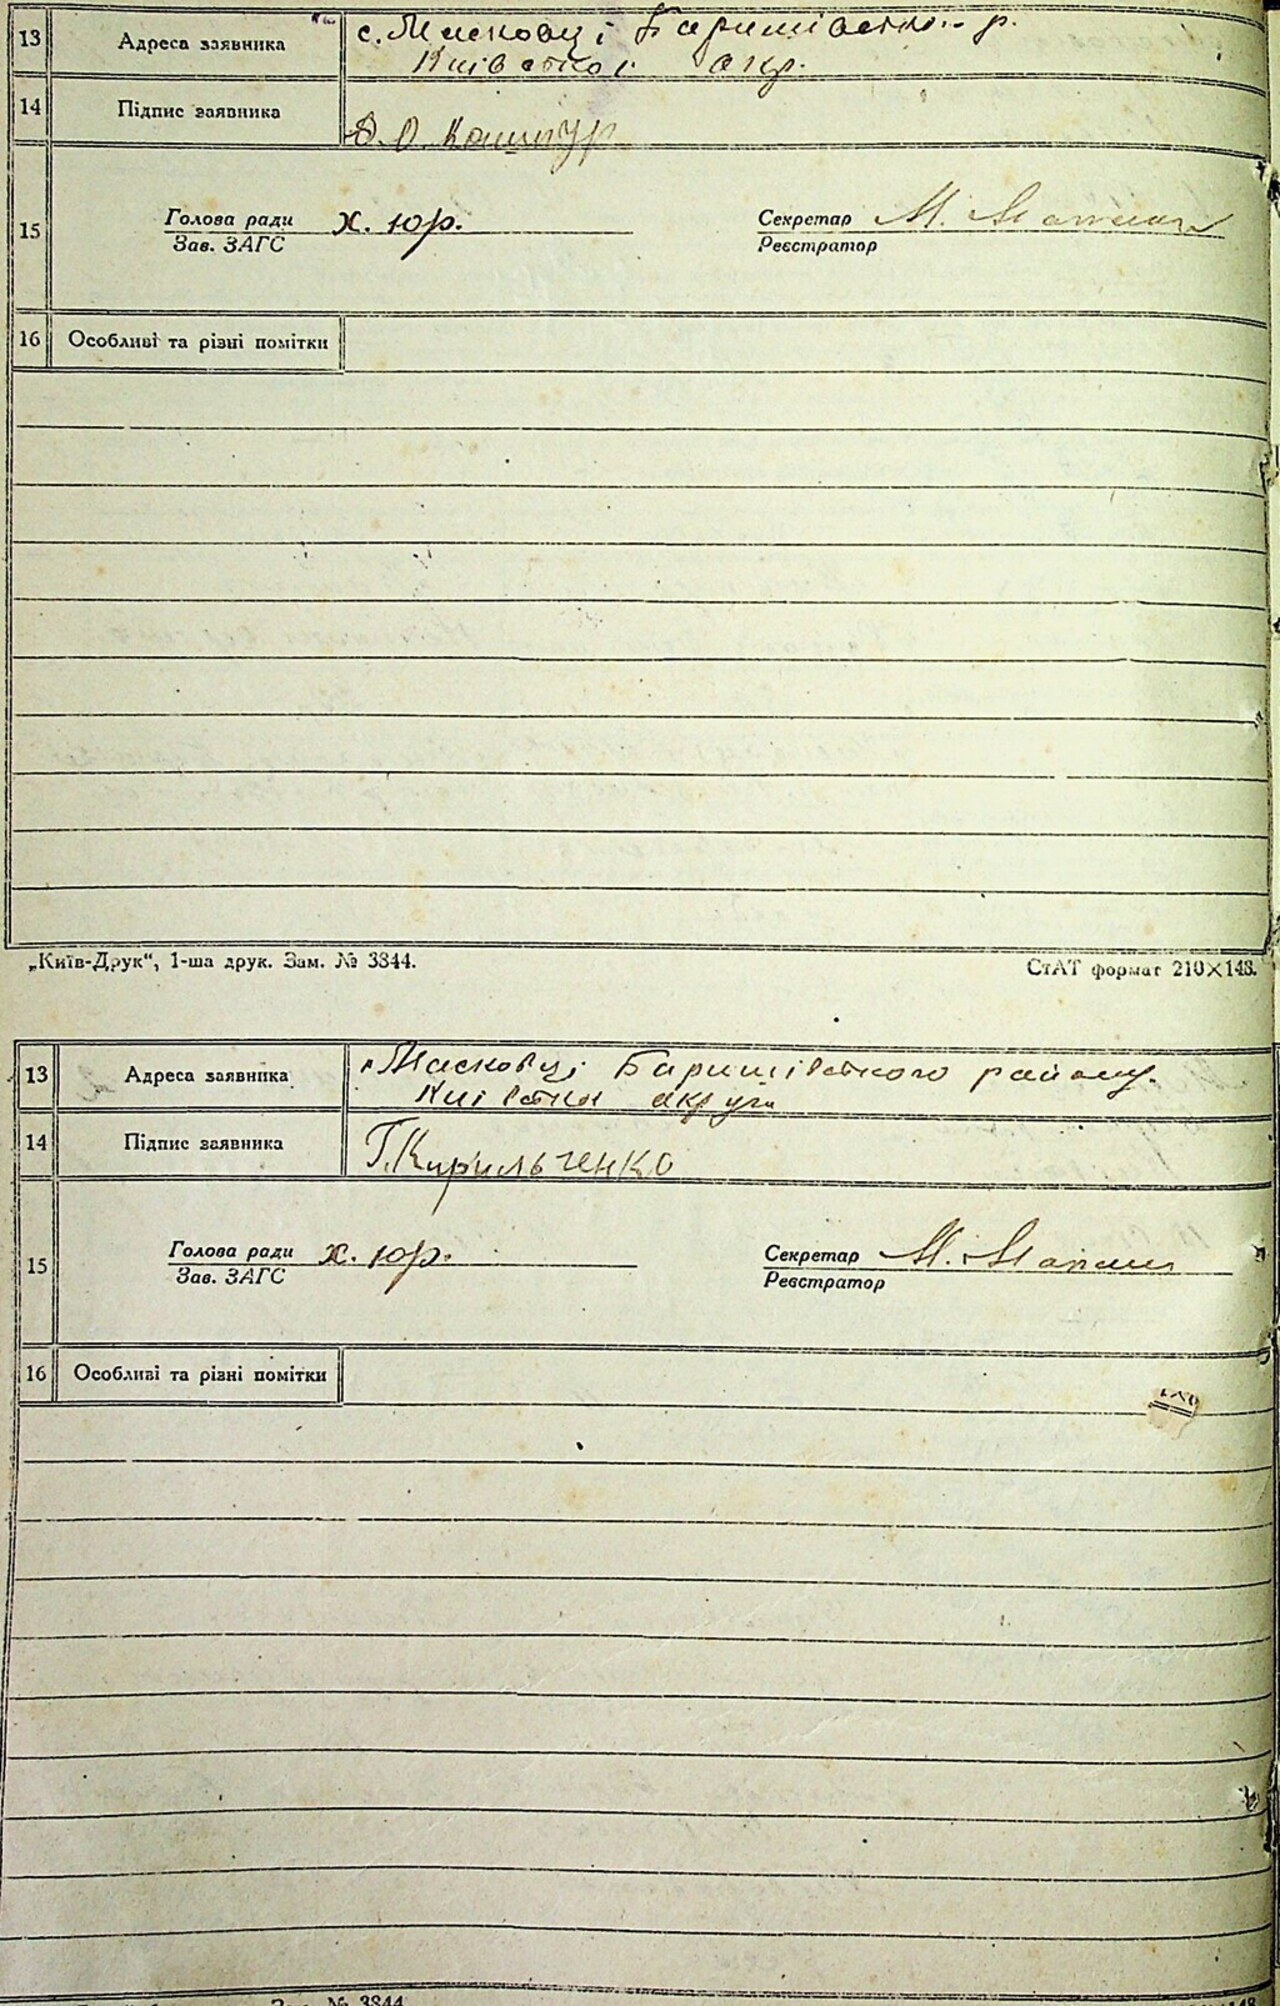 13 Адреса заявника с. Масковці Баришівсько- р.
Київської окр.
14 Підпис заявника О. Кашпур
15 Голова ради х. Юр. Секретар М.
Зав. ЗАГС Реєстратор
16 Особливі та різні помітки
„Київ-Друк“, 1-ша друк. Зам. № 3344. СтАТ формат 210×148.
13 Адреса заявника Масковці Баришівського району.
Київської округи
14 Підпис заявника Г. Кирильченко
15 Голова ради х. Юр. Секретар М.
Зав. ЗАГС Реєстратор
16 Особливі та різні помітки
Зам. № 3344